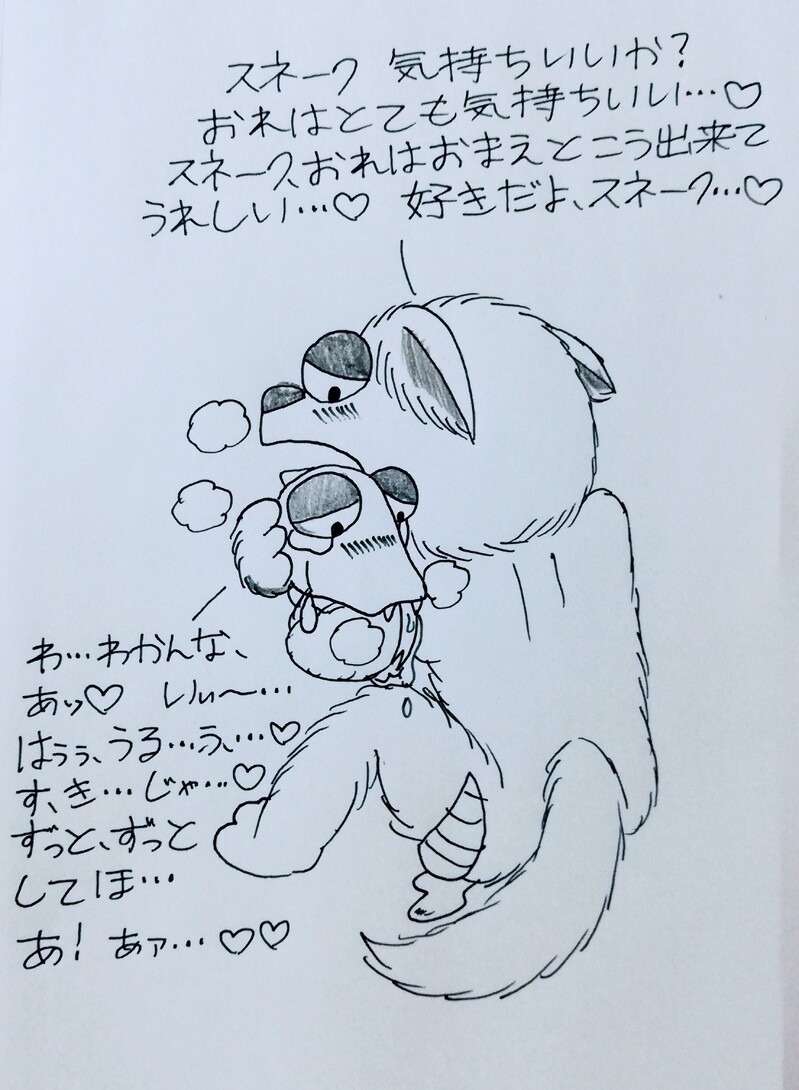 スネーク 気持ちいいか?
おれはとても気持ちいい…♡
スネーク、おれはおまえとこう出来て
うれしい…♡ 好きだよ、スネーク…♡
わ…わかんな、
あッ♡ いぃ〜…
はぅぅ、うる…ふ、…♡
す、き…じゃ…♡
ずっと、ずっと
してほ…
あ! あァ…♡♡